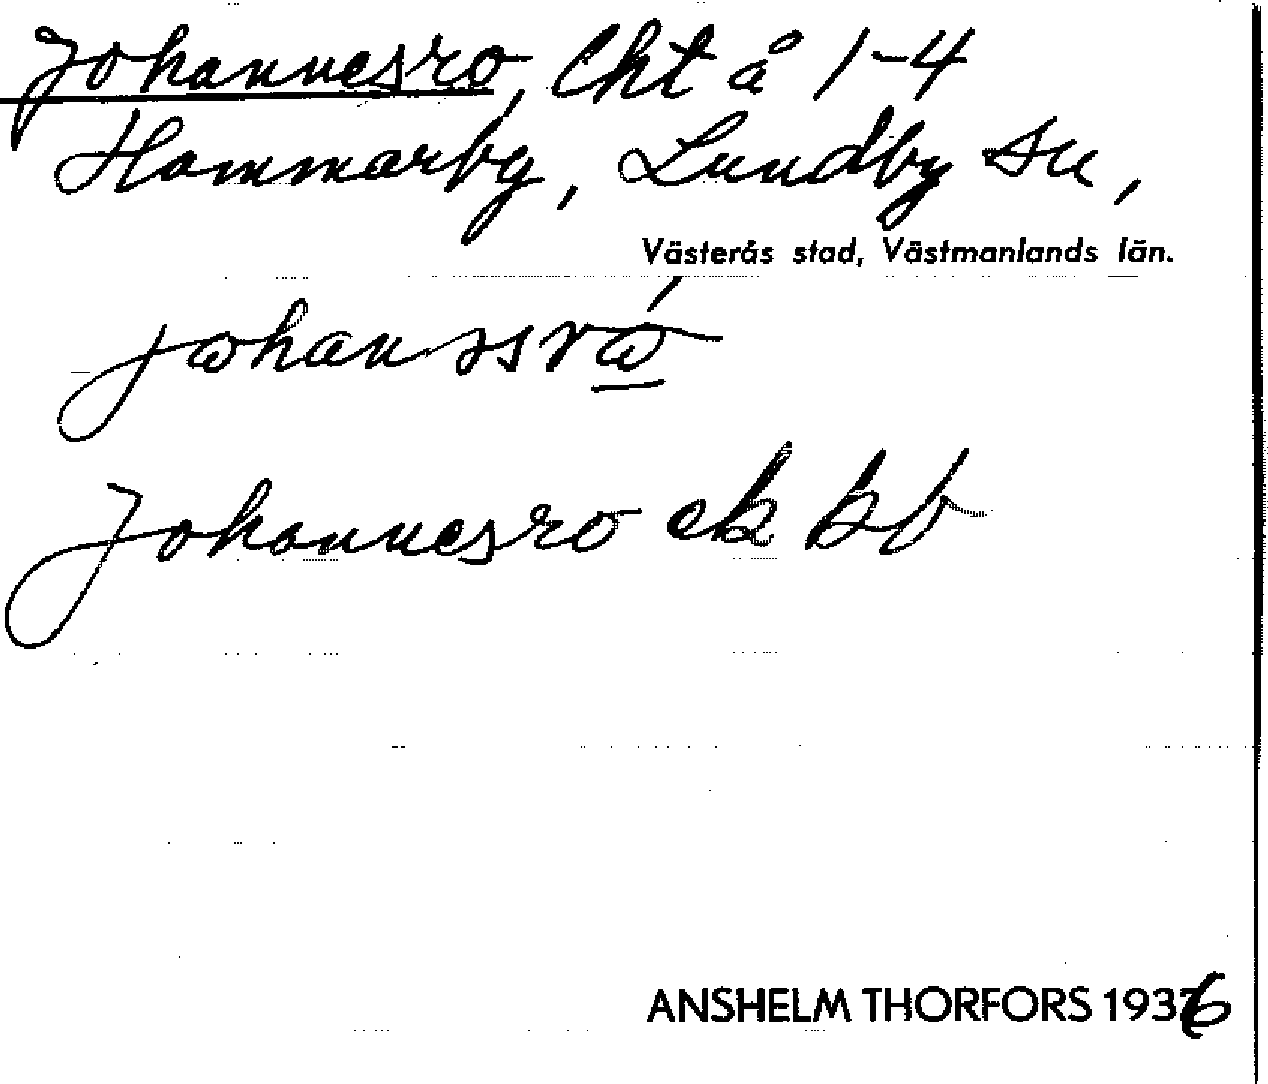 Johannesro, lht å 1-4
Hammarby, Lundby sn,
Västerås stad, Västmanlands län.
johanssró
Johannesro ek kb
ANSHELM THORFORS 1936